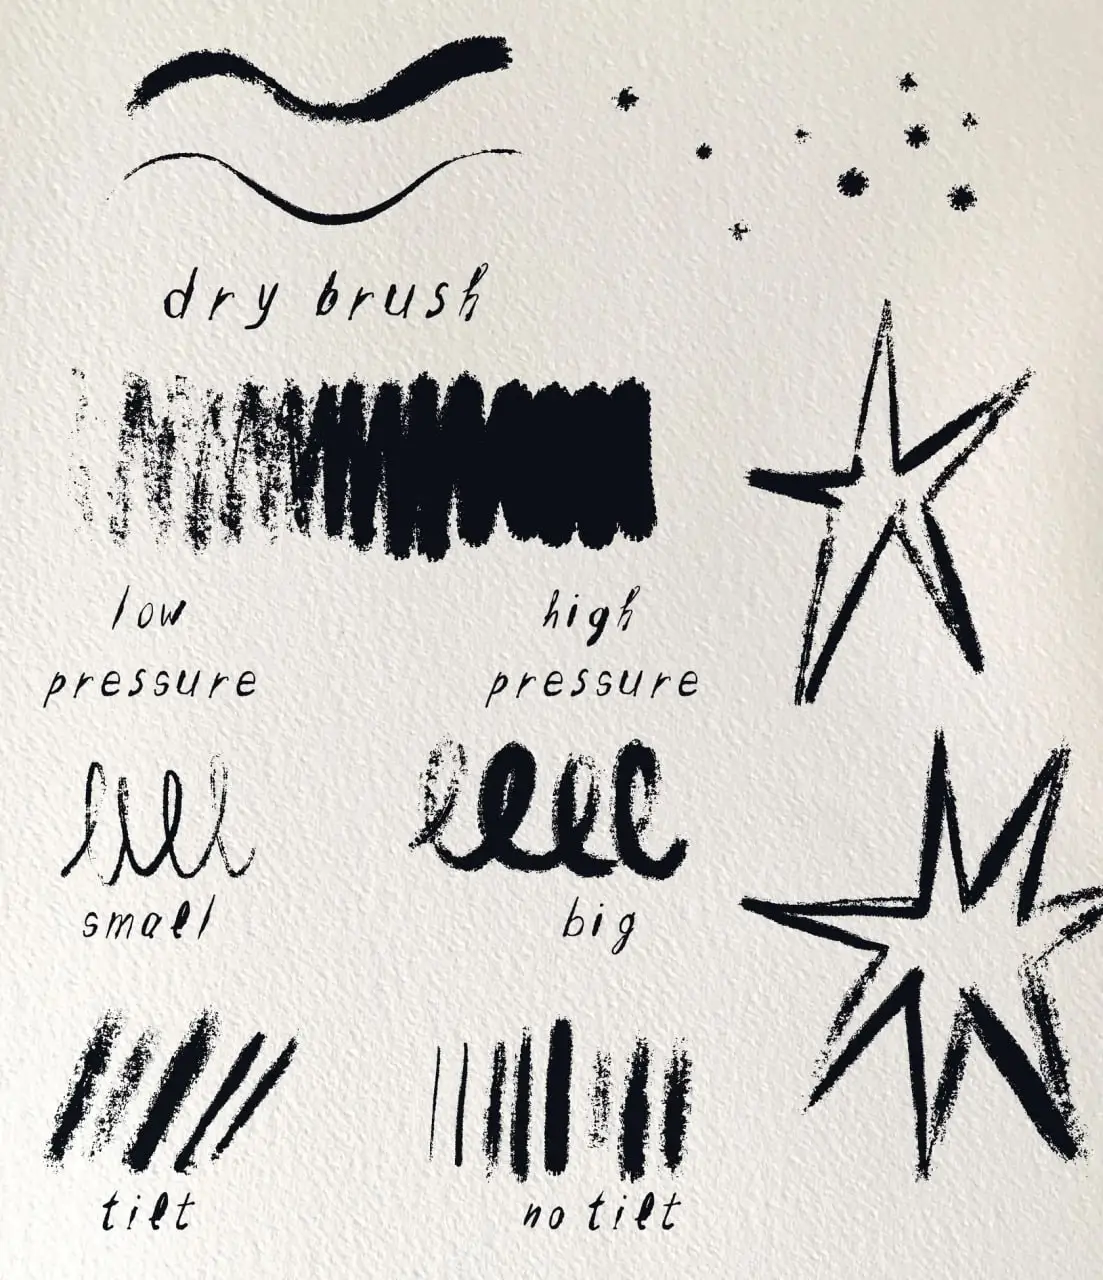 dry brush
low
pressure
high
pressure
small
big
tilt
no tilt